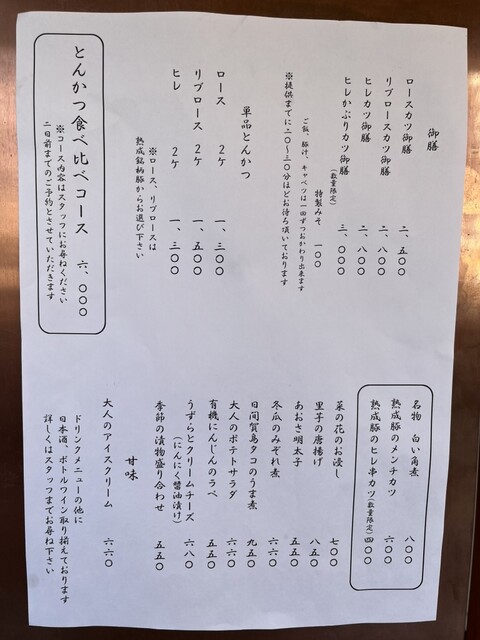 御膳
ロースカツ御膳 二、五〇〇
リブロースカツ御膳 二、八〇〇
ヒレカツ御膳 二、八〇〇
ヒレかぶりカツ御膳 三、〇〇〇
(数量限定)
特製みそ 一〇〇
ご飯、豚汁、キャベツは一回ずつおかわり出来ます
※提供までに二〇〜三〇分ほどお待ち頂いております
単品とんかつ
ロース 2ケ 一、三〇〇
リブロース 2ケ 一、五〇〇
ヒレ 2ケ 一、三〇〇
※ロース、リブロースは
熟成銘柄豚からお選び下さい
とんかつ食べ比べコース 六、〇〇〇
※コース内容はスタッフにお尋ねください
二日前までのご予約とさせていただきます
名物 白い角煮 八〇〇
熟成豚のメンチカツ 六〇〇
熟成豚のヒレ串カツ(数量限定) 四〇〇
菜の花のお浸し 七〇〇
里芋の唐揚げ 八五〇
あおさ明太子 五五〇
冬瓜のみぞれ煮 六六〇
日間賀島タコのうま煮 九五〇
大人のポテトサラダ 六六〇
有機にんじんのラペ 五五〇
うずらとクリームチーズ 六八〇
(にんにく醤油漬け)
季節の漬物盛り合わせ 五五〇
甘味
大人のアイスクリーム 六六〇
ドリンクメニューの他に
日本酒、ボトルワイン取り揃えております
詳しくはスタッフまでお尋ね下さい